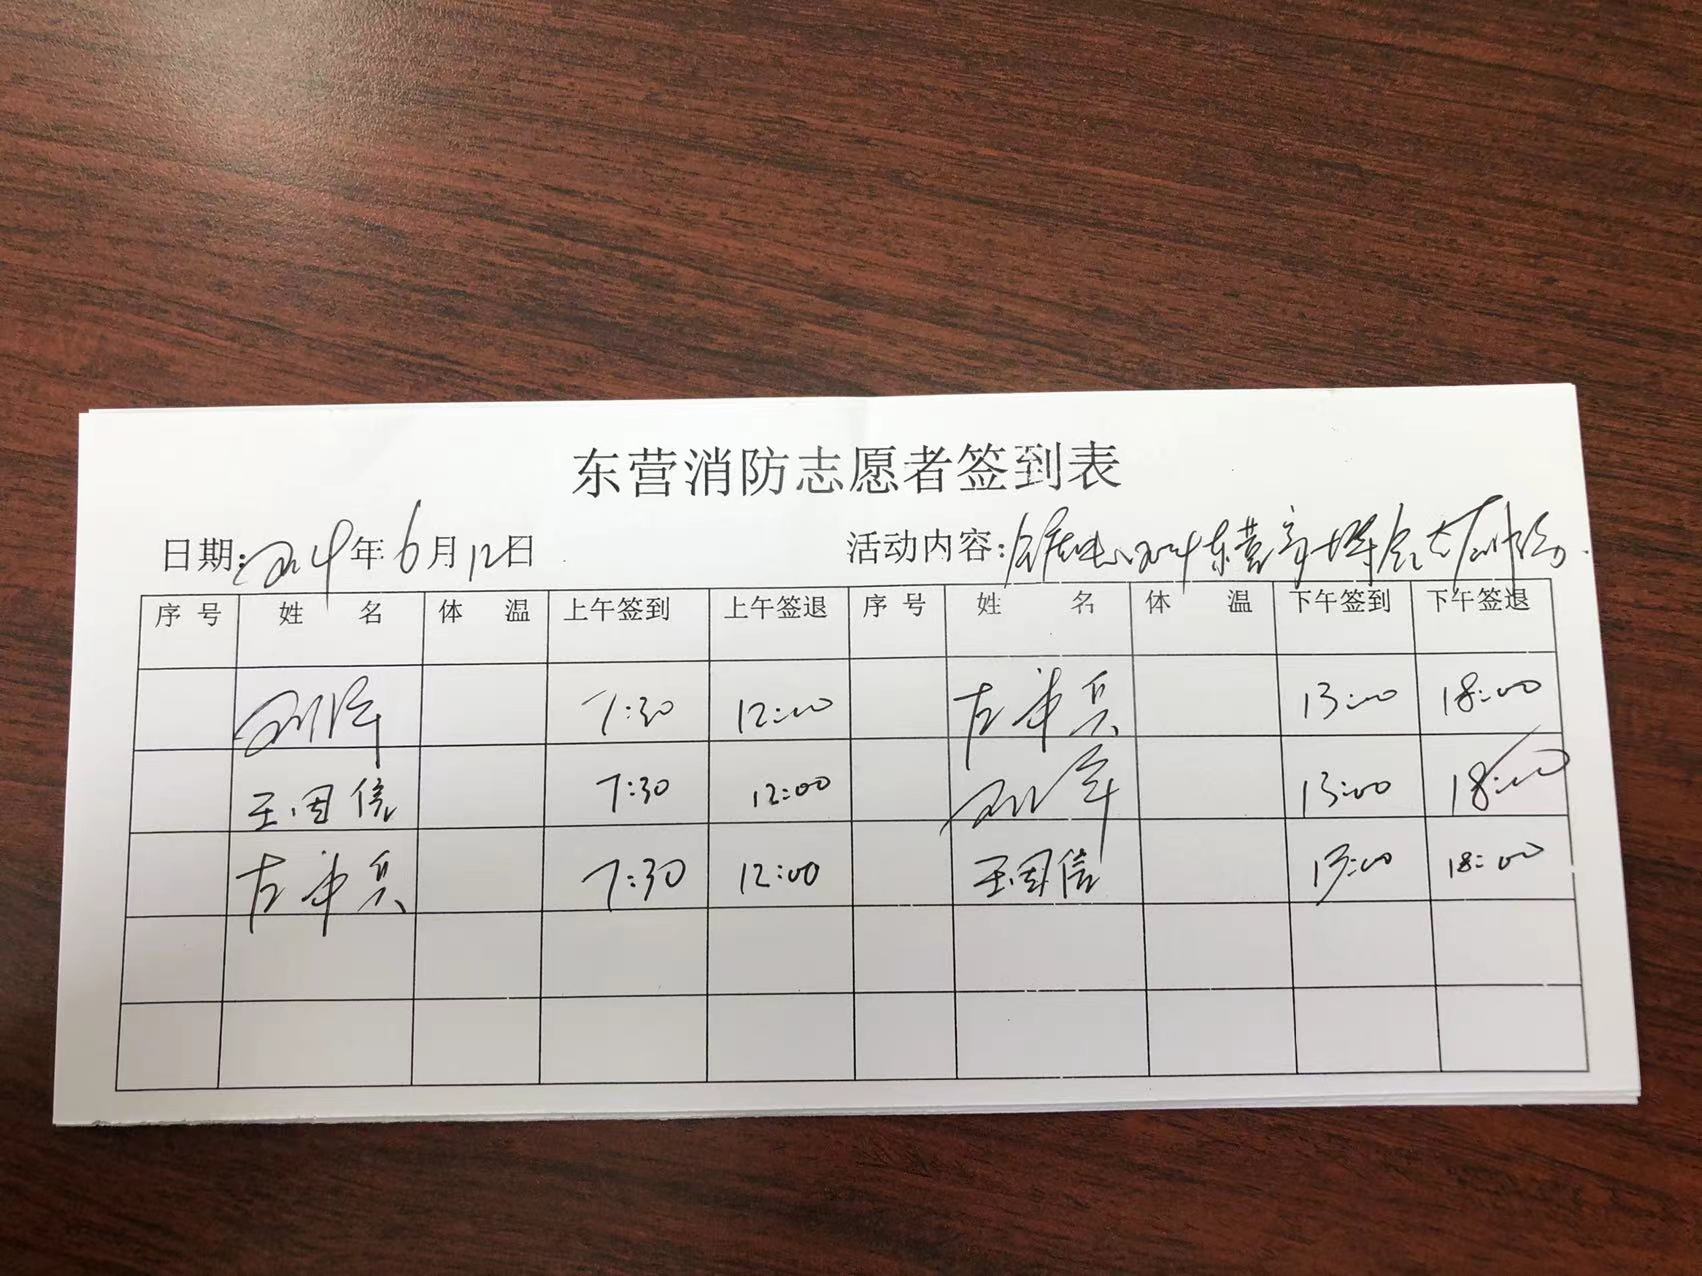 东营消防志愿者签到表
日期:2024年6月12日 活动内容: 2024东营市
序号 姓名 体温 上午签到 上午签退 序号 姓名 体温 下午签到 下午签退
刘军 7:30 12:00 左本兵 13:00 18:00
王国信 7:30 12:00 刘军 13:00 18:00
左本兵 7:30 12:00 王国信 13:00 18:00